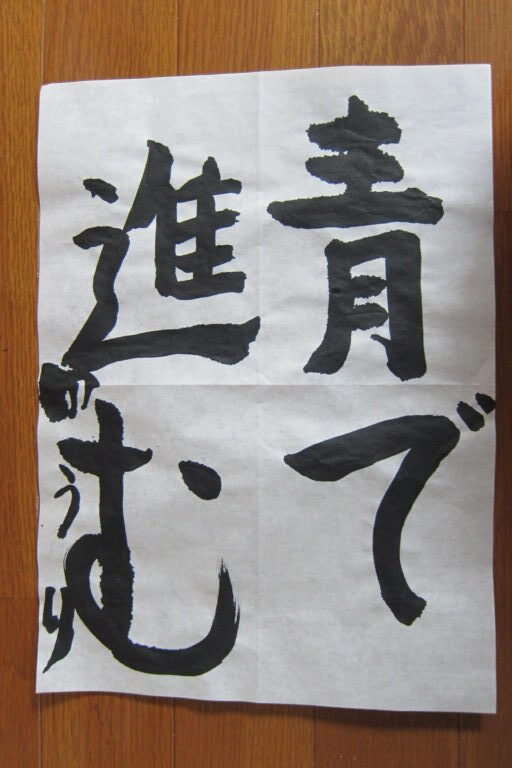 青で
進む
のうり